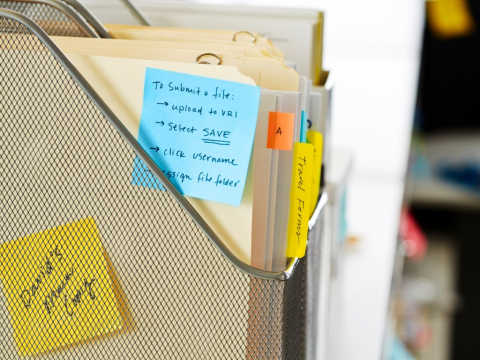 To submit a file:
→ upload to VR1
→ Select SAVE
→ click username
→ assign file folder
A
Travel Forms
David's
Main
Copy